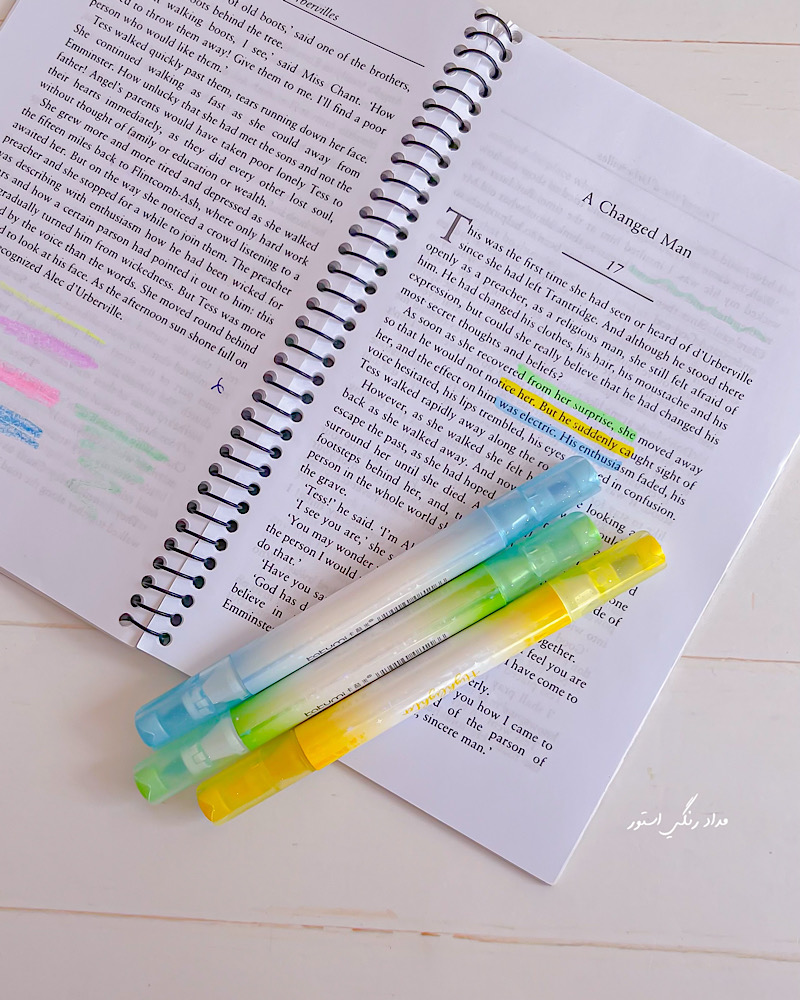 of old boots,' said one of the brothers,
boots behind the tree.
walking boots, I see,' said Miss Chant. 'How
to throw them away! Give them to me. I'll find a poor
person who would like them.'
Tess walked quickly past them, tears running down her face.
She continued walking as fast as she could away from
Emminster. How unlucky that she had met the sons and not the
father! Angel's parents would have taken poor lonely Tess to
their hearts immediately, as they did every other lost soul,
without thought of family or education or wealth.
She grew more and more tired and depressed as she walked
the fifteen miles back to Flintcomb-Ash, where only hard work
awaited her. But on the way she noticed a crowd listening to a
preacher and she stopped for a while to join them. The preacher
was describing with enthusiasm how he had been wicked for
and how a certain parson had pointed it out to him: this
gradually turned him from wickedness. But Tess was more
by the voice than the words. She moved round behind
to look at his face. As the afternoon sun shone full on
recognized Alec d'Urberville.
A Changed Man
17
This was the first time she had seen or heard of d'Urberville
since she had left Trantridge. And although he stood there
openly as a preacher, as a religious man, she still felt afraid of
him. He had changed his clothes, his hair, his moustache and his
expression, but could she really believe that he had changed his
most secret thoughts and beliefs?
As soon as she recovered from her surprise, she moved away
so that he would not notice her. But he suddenly caught sight of
her, and the effect on him was electric. His enthusiasm faded, his
voice hesitated, his lips trembled, his eyes in confusion.
Tess walked rapidly away along the
However, as she walked she felt looking
back as she walked away. And now
escape the past, as she had hoped
surround her until she died.
footsteps behind her, and,
person in the whole world one
the grave. de of
'Tess!' he said. 'I'm
'I see you are,' she together.
'You may wonder feel you are
the person I would I have come to
do that.'
'Have you
'God has erly.
believe in you how I came to
Emminster of the parson of
sincere man.'
Highlighter
مداد رنگي استور